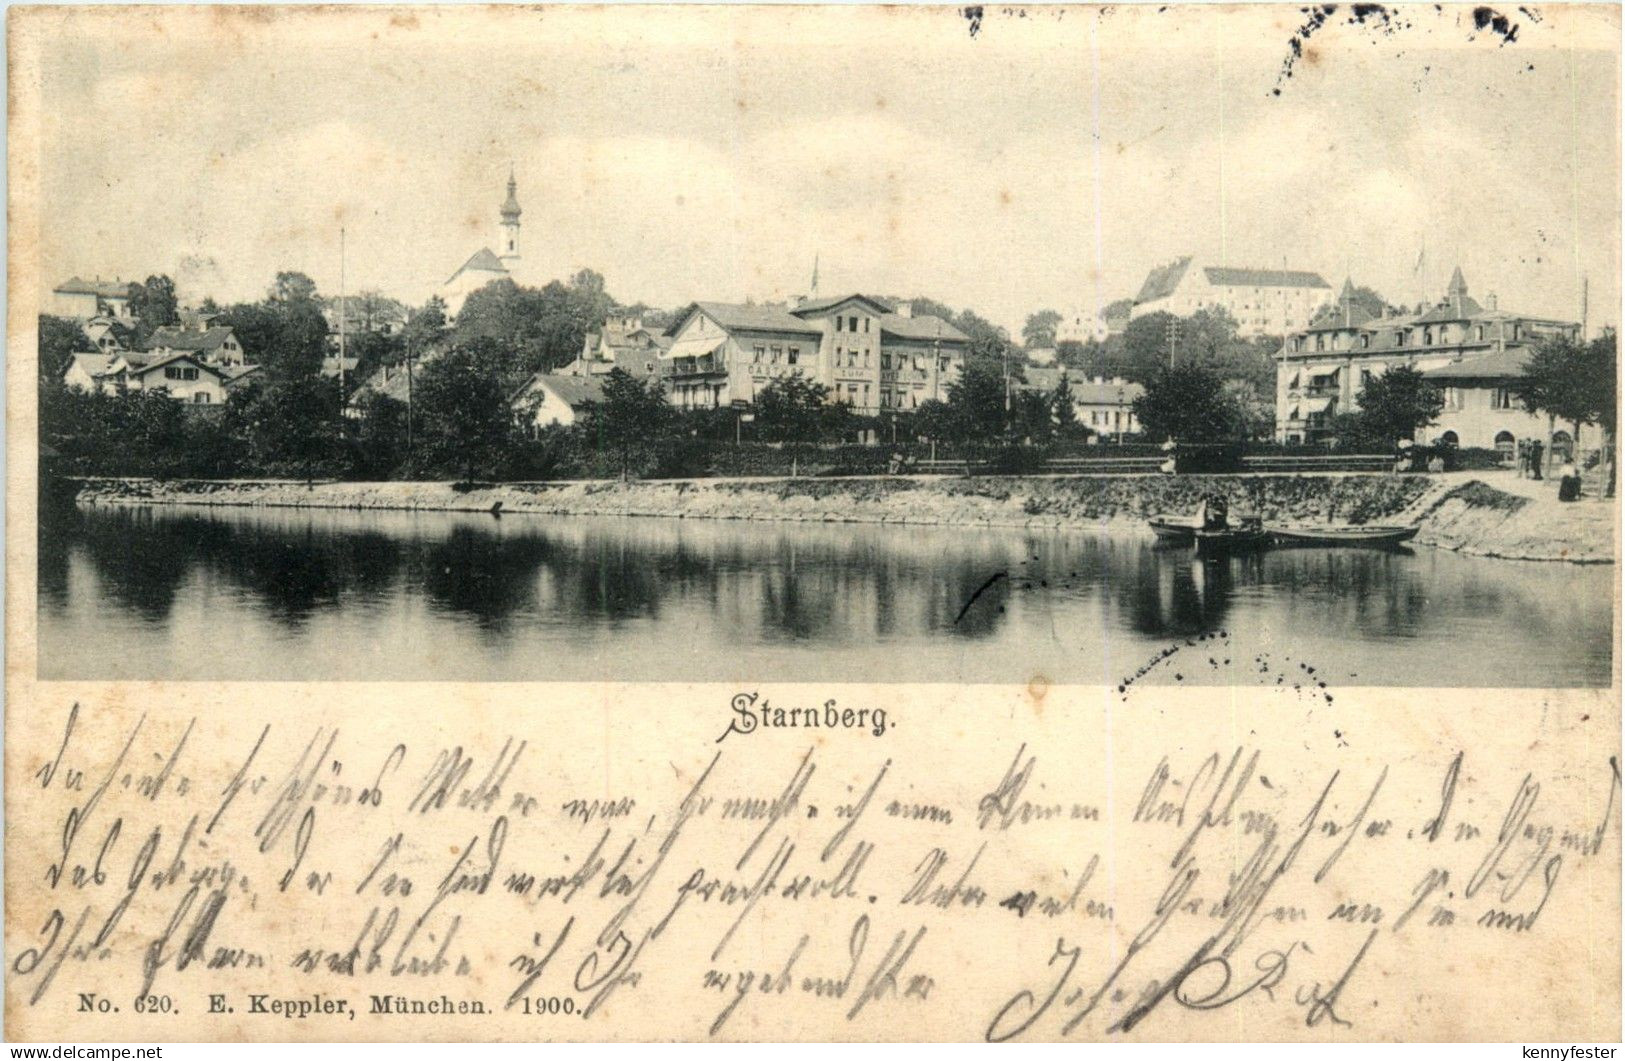 GASTHOF ZUM
Starnberg.
da heute so schönes Wetter war, so machte ich einen kleinen Ausflug hieher. Die Gegend
das Gebirge, der See sind wirklich prachtvoll. Unter vielen Grüßen an Sie und
Ihre Eltern verbleibe ich Ihr ergebenster Joseph
No. 620. E. Keppler, München. 1900.
kennyfester